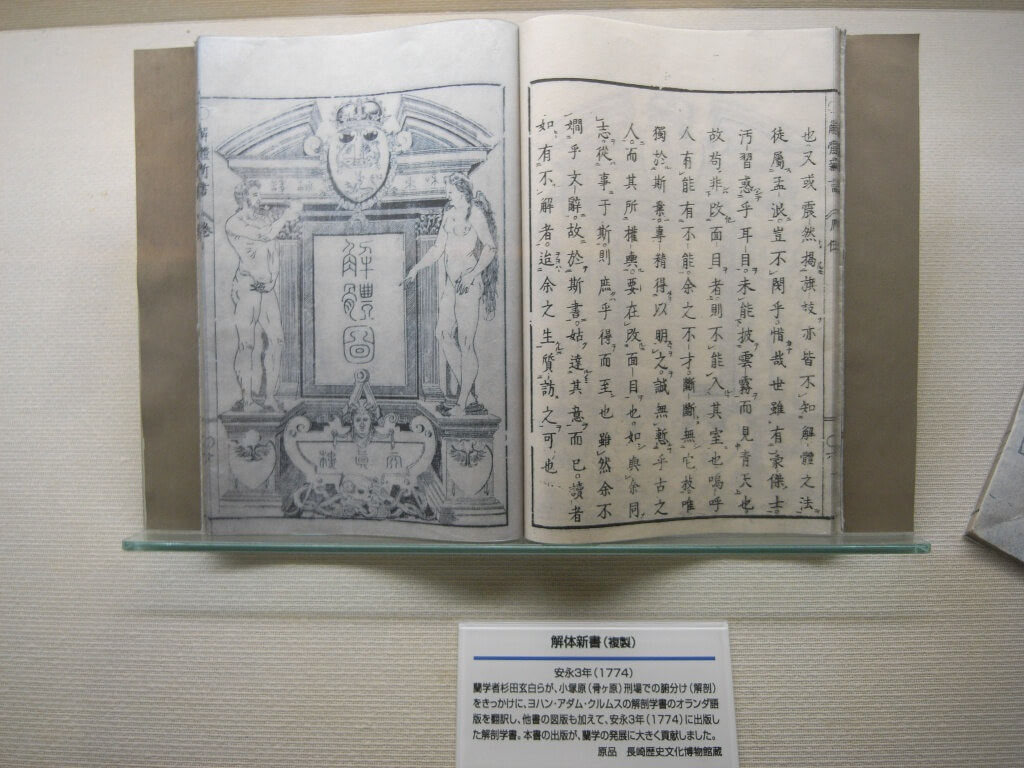 也又或震然揭旗妓亦皆不知解體之法
徒屬孟浪豈不閔乎惜哉世雖有豪傑士
汚習惑乎耳目未能披雲霧而見青天也
故苟非改面目者則不能入其室也嗚呼
人有能有不能余之不才斷斷無它技唯
獨於斯業專精得以明之誠無慙乎古之
人而其所權輿要在改面目也如與余同
志從事于斯則庶乎得而至也雖然余不
嫺乎文辭故於斯書姑達其意而已讀者
如有不解者造余之生質訪之可也
解體圖
解体新書(複製)
安永3年(1774)
蘭学者杉田玄白らが、小塚原(骨ヶ原)刑場での腑分け(解剖)
をきっかけに、ヨハン・アダム・クルムスの解剖学書のオランダ語
版を翻訳し、他書の図版も加えて、安永3年(1774)に出版し
た解剖学書。本書の出版が、蘭学の発展に大きく貢献しました。
原品 長崎歴史文化博物館蔵